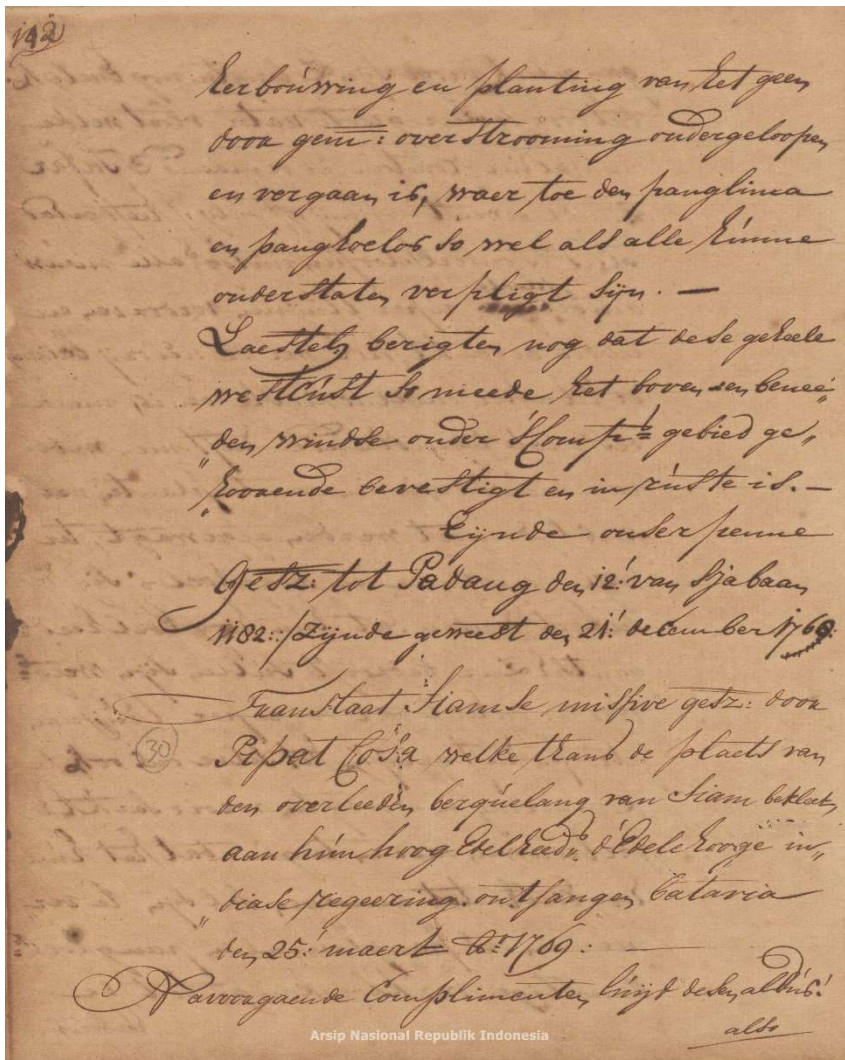 142
herbouwing en planting van het geen
door gem: overstrooming ondergeloopen
en vergaan is, waer toe den panglima
en panghoelos so wel als alle hunne
onderstaten verpligt sijn. —
Laestelh berigten nog dat dese geheele
westcust so meede het boven en benee„
„den windse onder 'sComps gebied ge„
„hoorende bevestigt en in ruste is. —
Eijnde onser penne
Gesz: tot Padang den 12: van Sjabaan
1182:/ Zijnde geweest den 21: december 1768:
Translaat Siamse missive gesz: door
30
Prpat Cosa welke thans de plaets van
den overleeden berquelang van Siam bekleet,
aan hun hoog Edelheeds d'Edele hooge in„
„diase regeering ontfangen Batavia
den 25: maert Ao 1769: —
Navoorgaende Complimenten, luijd desen aldus:
also
Arsip Nasional Republik Indonesia